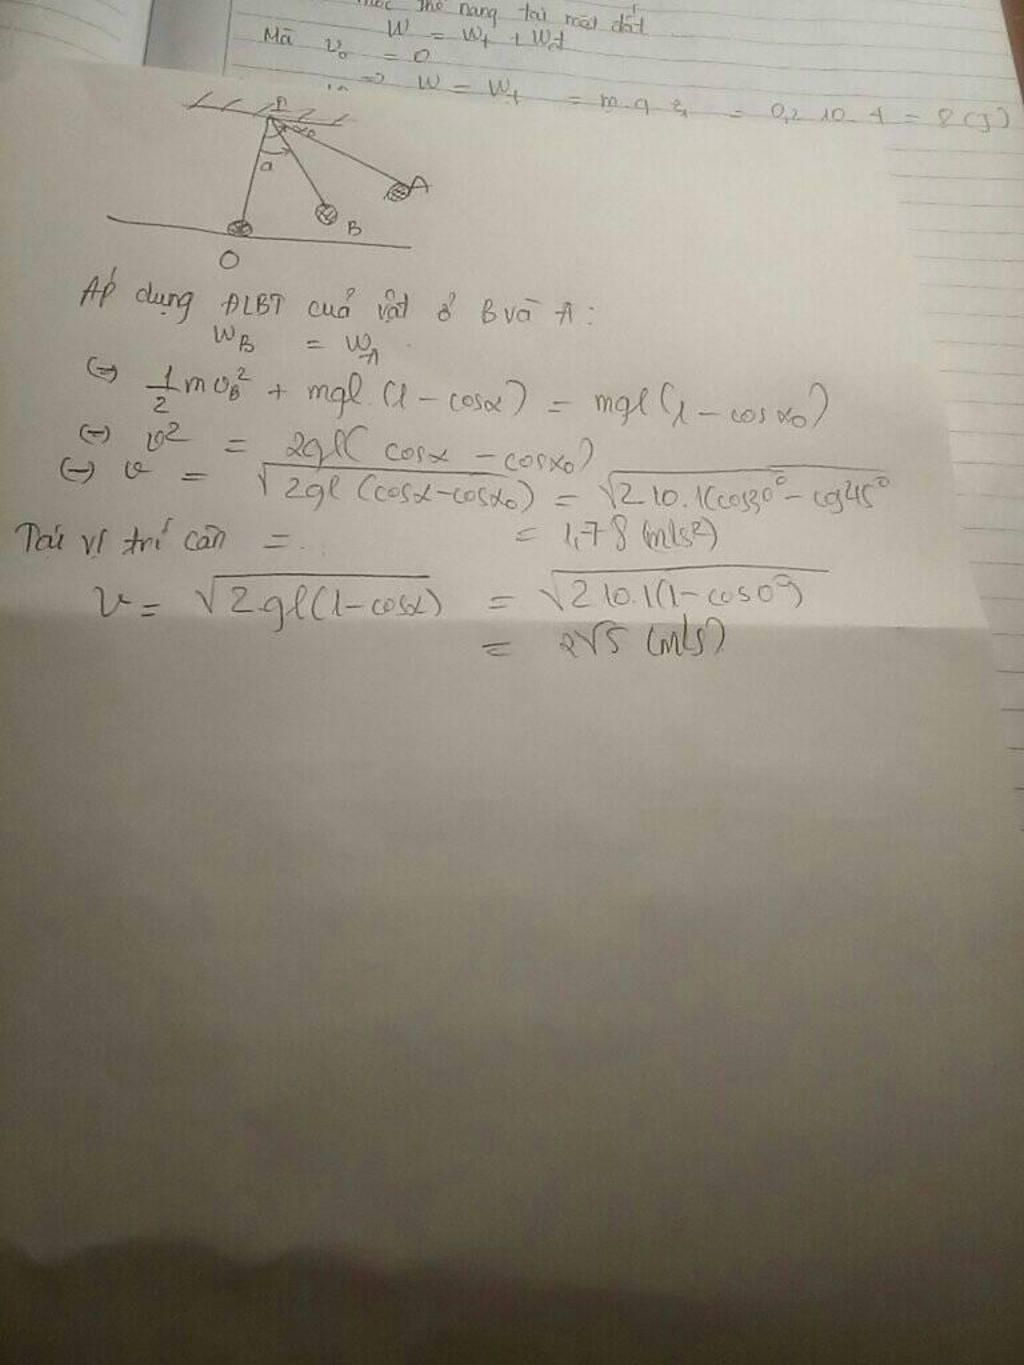 thế năng tại mặt đất
W = Wt + Wđ
Mà v₀ = 0
=> W = Wt = m.g.z₁ = 0,2.10.4 = 8 (J)
α₀
a
A
B
O
Áp dụng ĐLBT cuả vật ở B và A:
W_B = W_A
(=) 1/2 m v_B² + mgl.(1 - cosα) = mgl(1 - cosα₀)
(=) v² = 2gl( cosα - cosα₀)
(=) v = √2gl (cosα - cosα₀) = √2 10.1(cos30⁰ - cos45⁰
= 1,78 (m/s²)
Tại vị trí cân = ...
v = √2gl(1 - cosα) = √2 10.1(1 - cos0⁰)
= 2√5 (m/s)